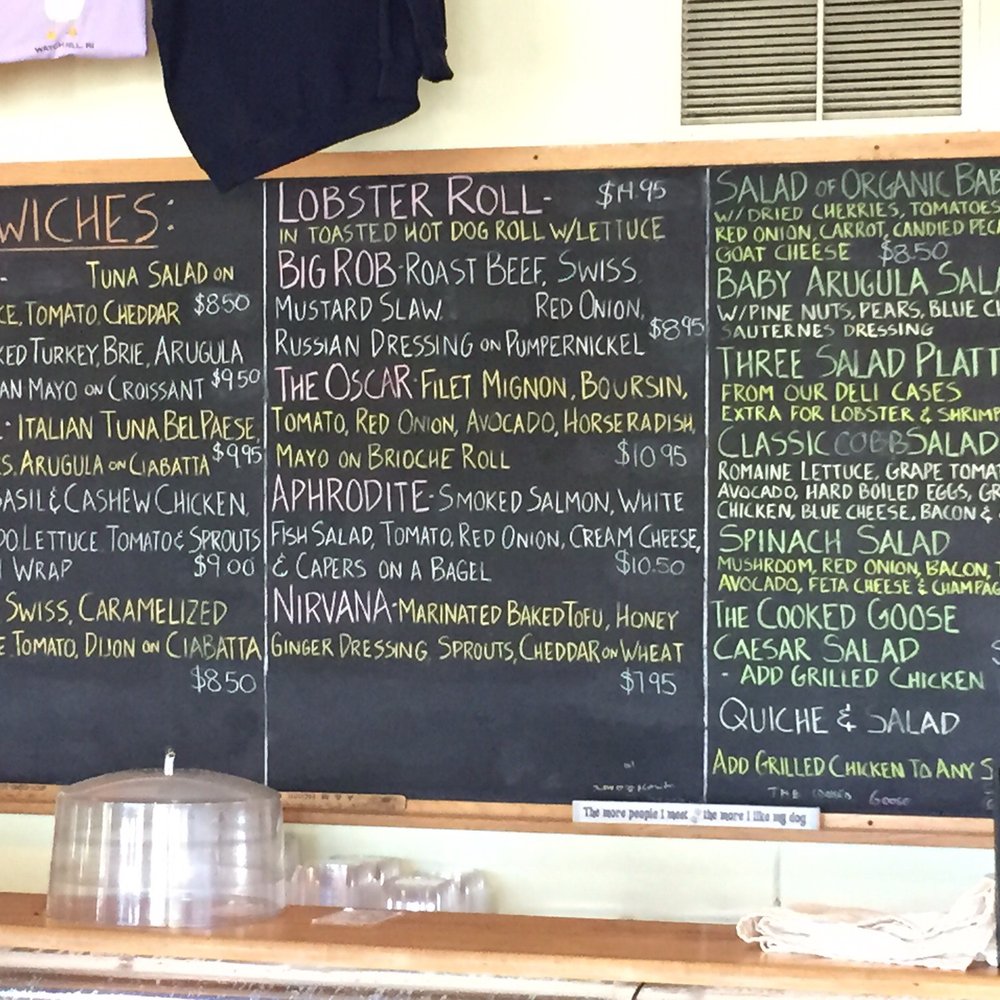 WATCH HILL, RI
WICHES:
TUNA SALAD ON
TOMATO, CHEDDAR $8.50
TURKEY, BRIE, ARUGULA
MAYO ON CROISSANT $9.50
ITALIAN TUNA, BEL PAESE,
ARUGULA ON CIABATTA $9.95
BASIL & CASHEW CHICKEN,
LETTUCE TOMATO & SPROUTS
WRAP $9.00
SWISS, CARAMELIZED
TOMATO, DIJON ON CIABATTA
$8.50
LOBSTER ROLL- $14.95
IN TOASTED HOT DOG ROLL W/LETTUCE
BIG ROB-ROAST BEEF, SWISS
MUSTARD SLAW RED ONION,
$8.95
RUSSIAN DRESSING ON PUMPERNICKEL
THE OSCAR-FILET MIGNON, BOURSIN,
TOMATO, RED ONION, AVOCADO, HORSERADISH
MAYO ON BRIOCHE ROLL $10.95
APHRODITE-SMOKED SALMON, WHITE
FISH SALAD, TOMATO, RED ONION, CREAM CHEESE,
& CAPERS ON A BAGEL $10.50
NIRVANA-MARINATED BAKED TOFU, HONEY
GINGER DRESSING SPROUTS, CHEDDAR ON WHEAT
$7.95
SALAD OF ORGANIC BAB
W/DRIED CHERRIES, TOMATOES
RED ONION, CARROT, CANDIED PECA
GOAT CHEESE $8.50
BABY ARUGULA SALA
W/PINE NUTS, PEARS, BLUE C
SAUTERNES DRESSING
THREE SALAD PLATT
FROM OUR DELI CASES
EXTRA FOR LOBSTER & SHRIMP
CLASSIC COBB SALAD
ROMAINE LETTUCE, GRAPE TOMAT
AVOCADO, HARD BOILED EGGS, GR
CHICKEN, BLUE CHEESE, BACON &
SPINACH SALAD
MUSHROOM, RED ONION, BACON, T
AVOCADO, FETA CHEESE & CHAMPAG
THE COOKED GOOSE
CAESAR SALAD
- ADD GRILLED CHICKEN
QUICHE & SALAD
ADD GRILLED CHICKEN TO ANY S
THE COOKED GOOSE
The more people I meet the more I like my dog